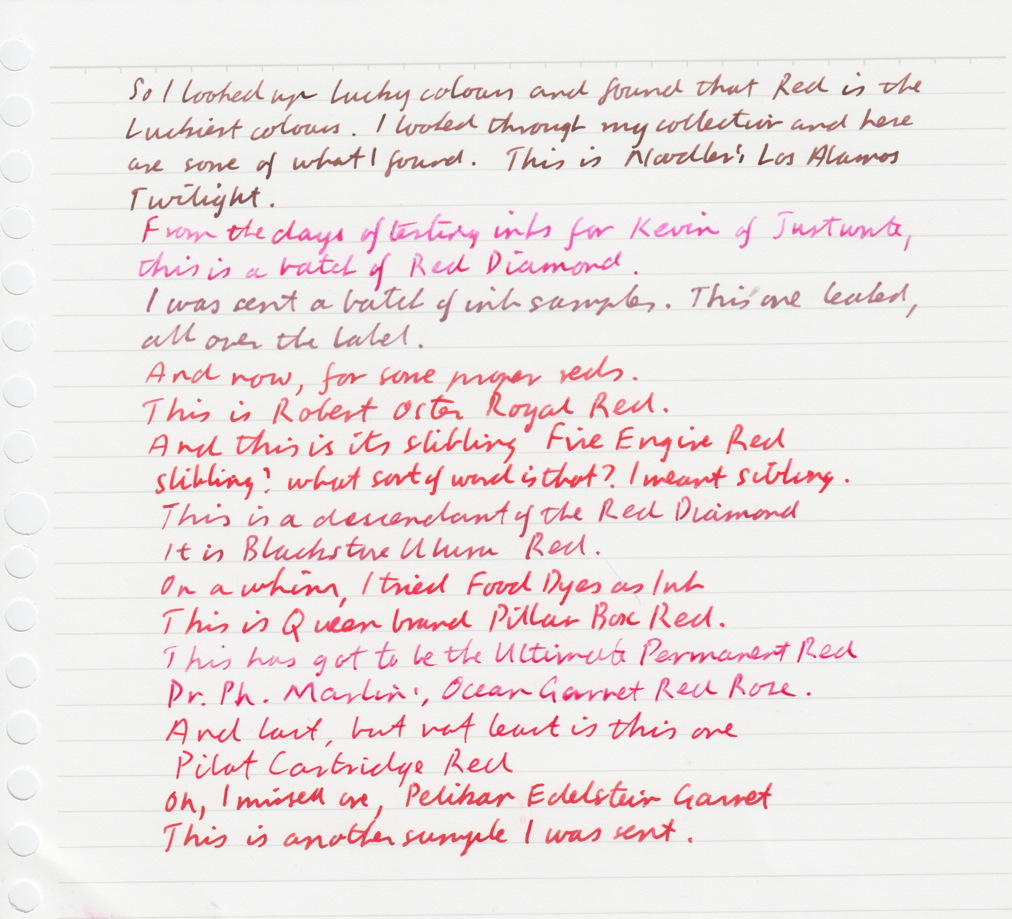 So I looked up lucky colours and found that Red is the
Luckiest colour. I looked through my collection and here
are some of what I found. This is Noodler's Los Alamos
Twilight.
From the days of testing inks for Kevin of Justwrite,
this is a batch of Red Diamond.
I was sent a batch of ink samples. This one leaked,
all over the label.
And now, for some proper reds.
This is Robert Oster Royal Red.
And this is its slibling Fire Engine Red
slibling? what sort of word is that? I meant sibling.
This is a descendant of the Red Diamond
It is Blackstone Uluru Red.
On a whim, I tried Food Dyes as Ink
This is Queen brand Pillar Box Red.
This has got to be the Ultimate Permanent Red
Dr. Ph. Martin's, Ocean Garnet Red Rose.
And last, but not least is this one
Pilot Cartridge Red
Oh, I missed one, Pelikan Edelstein Garnet
This is another sample I was sent.